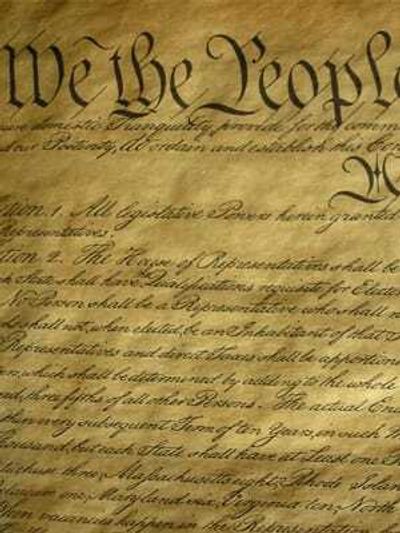 We the People
domestic Tranquility, provide for the common
our Posterity, do ordain and establish this Con
A
tion. 1. All legislative Powers herein granted
Representatives.
tion 2. The House of Representatives shall be
State shall have Qualifications requisite for Elector
No Person shall be a Representative who shall no
shall not, when elected, be an Inhabitant of that
Representatives and direct Taxes shall be apportion
which shall be determined by adding to the whole
three fifths of all other Persons. The actual Enu
every subsequent Term of ten Years, in such
thousand, but each State shall have at Least one
three, Massachusetts eight, Rhode Islan
one, Maryland six, Virginia ten, North
vacancies happen in the Representation